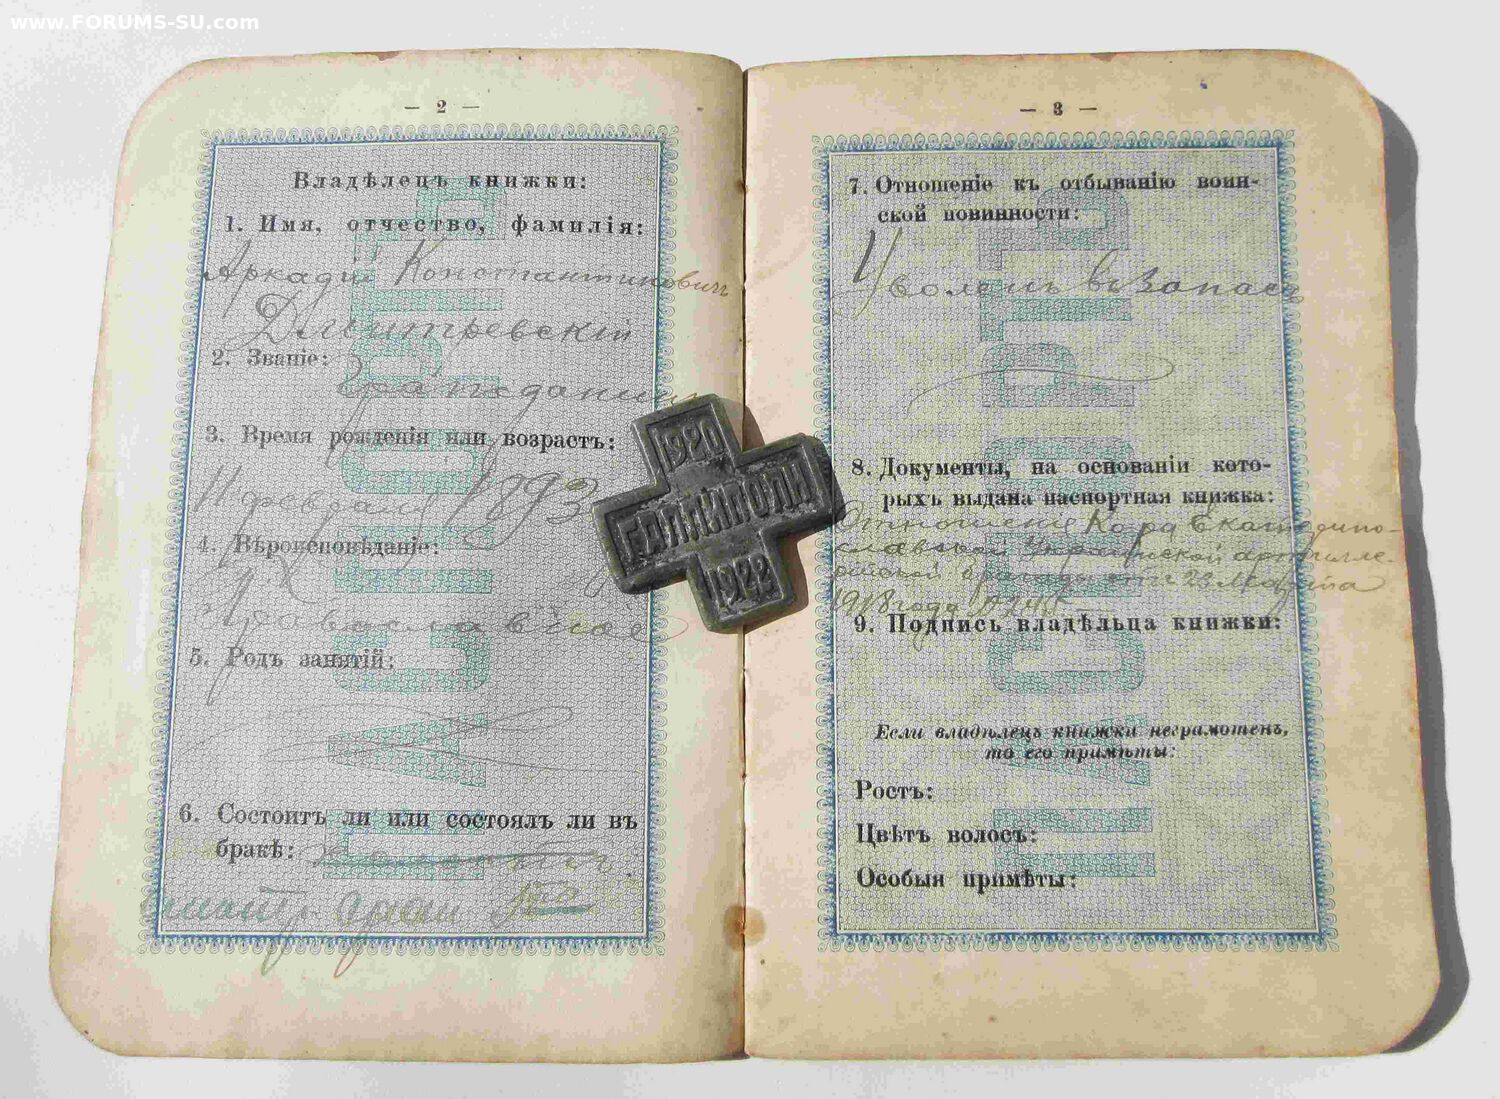 www.FORUMS-SU.com
— 2 —
Владѣлецъ книжки:
1. Имя, отчество, фамилія:
Аркадій Константиновичъ
Дмитревскій
2. Званіе:
Гражданинъ
3. Время рожденія или возрастъ:
11 февраля 1893
4. Вѣроисповѣданіе:
Православное
5. Родъ занятій:
6. Состоитъ ли или состоялъ ли въ
бракѣ:
— 3 —
7. Отношеніе къ отбыванію воин-
ской повинности:
Уволенъ въ Запасъ
8. Документы, на основаніи кото-
рыхъ выдана паспортная книжка:
Отношеніе Ком Екатерино-
славской Украинской артилле-
рійской бригады отъ 22 Марта
1918 года №
9. Подпись владѣльца книжки:
Если владѣлецъ книжки неграмотенъ,
то его примѣты:
Ростъ:
Цвѣтъ волосъ:
Особыя примѣты:
ПАСПОРТЪ
ПАСПОРТЪ
1920
ГАЛЛИПОЛИ
1922